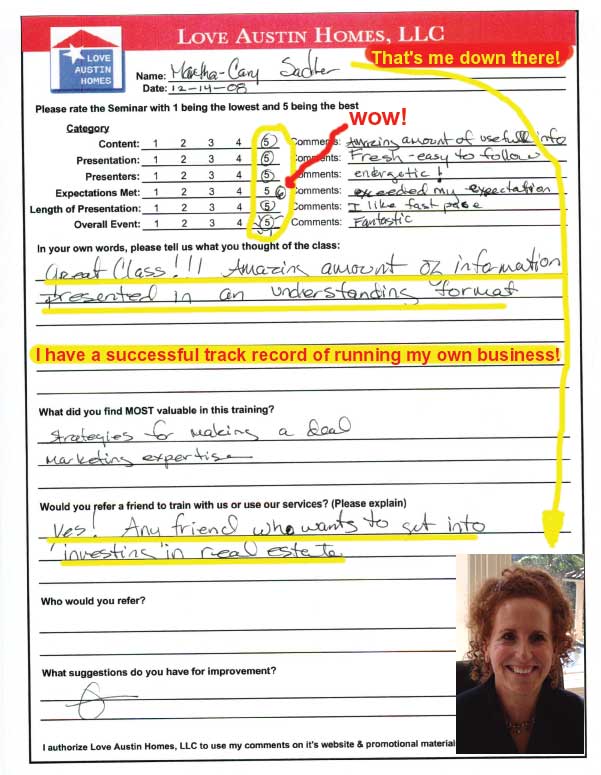 LOVE AUSTIN HOMES
LOVE AUSTIN HOMES, LLC
That's me down there!
Name: Martha-Cary
Date: 12-14-08
Please rate the Seminar with 1 being the lowest and 5 being the best
wow!
Category
Content: 1 2 3 4 5 Comments: Amazing amount of usefull info
Presentation: 1 2 3 4 5 Comments: Fresh-easy to follow
Presenters: 1 2 3 4 5 Comments: energetic!
Expectations Met: 1 2 3 4 5 6 Comments: exceeded my expectation
Length of Presentation: 1 2 3 4 5 Comments: I like fast pace
Overall Event: 1 2 3 4 5 Comments: Fantastic
In your own words, please tell us what you thought of the class:
Great Class!!! Amazing amount of information
presented in an understanding format
I have a successful track record of running my own business!
What did you find MOST valuable in this training?
strategies for making a deal
marketing expertise
Would you refer a friend to train with us or use our services? (Please explain)
Yes! Any friend who wants to get into
"investing" in real estate.
Who would you refer?
What suggestions do you have for improvement?
I authorize Love Austin Homes, LLC to use my comments on it's website & promotional material